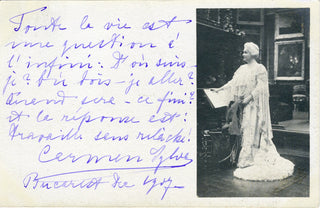 Toute la vie est
une question à
l'infini: D'où suis-
je? où dois-je aller?
Quand sera-ce fini?
et la réponse est:
travaille sans relâche!
Carmen Sylva
Bucarest Dec 1907